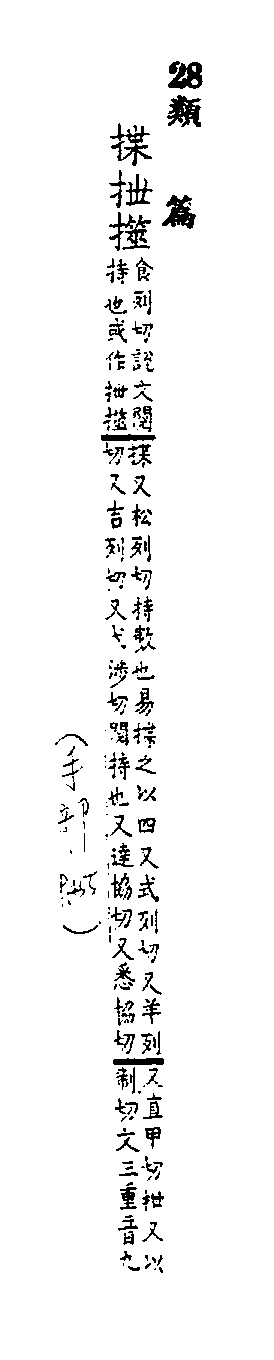 28類 篇
揲抴
食列切說文閱
持也或作抴
揲又松列切持數也易揲之以四又式列切又羊列
切又吉列切又弋涉切閱持也又達協切又悉協切
又直甲切抴又以
制切文三重音九
(手部)